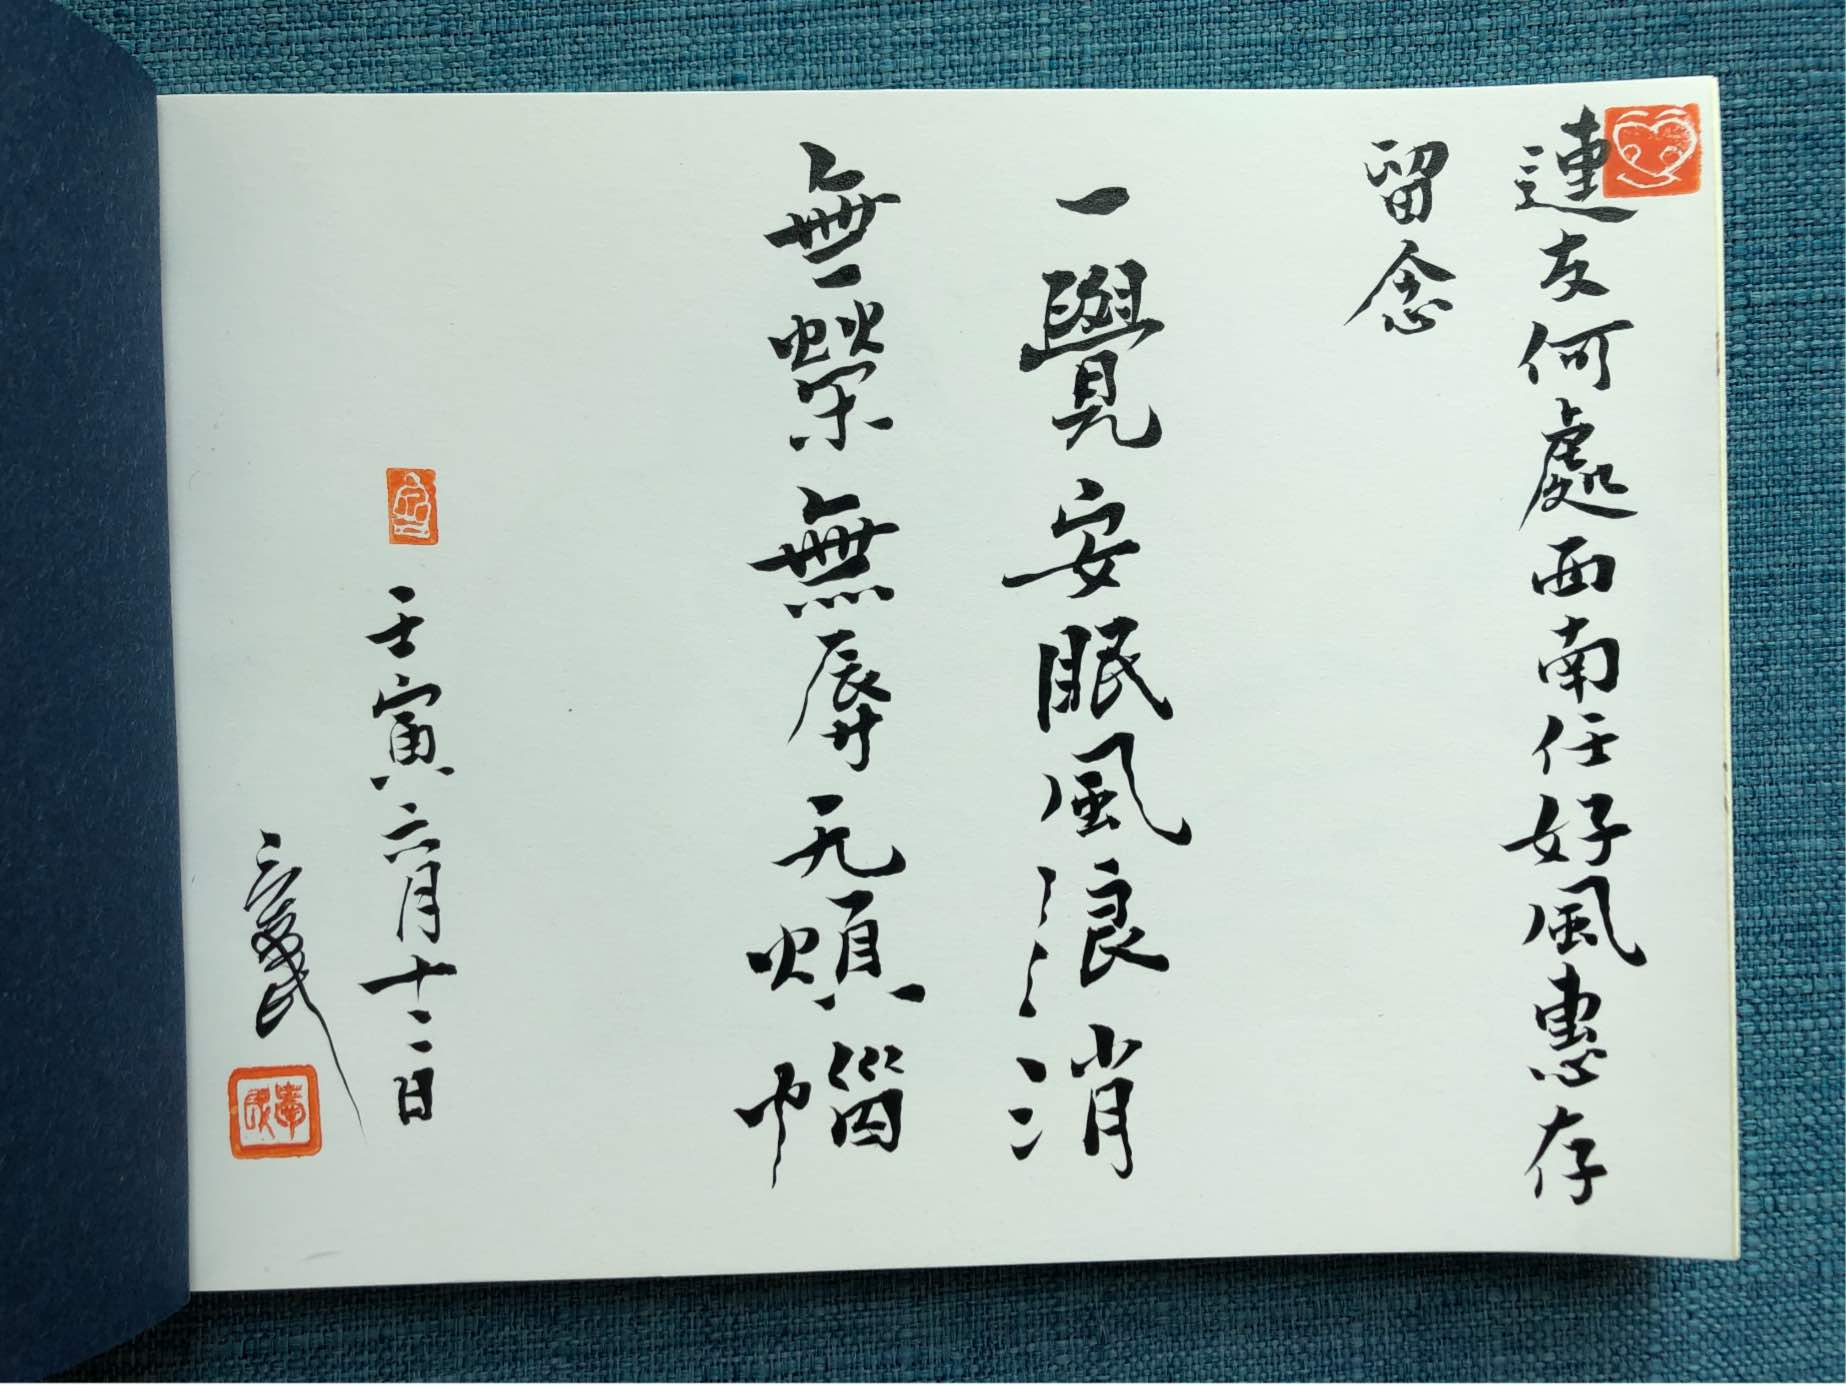 連友何處西南任好風惠存
留念
一覺安眠風浪消
無榮無辱无煩惱
壬寅六月十二日